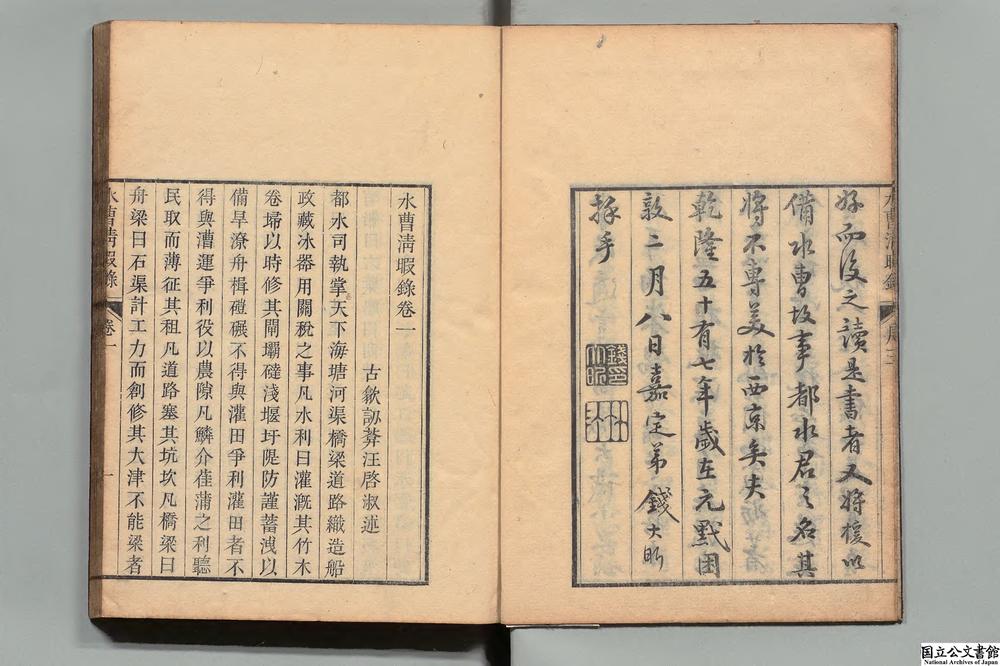 好而後之讀是書者又將援以
備水曹故事都水君之名其
將不專美於西京矣夫
乾隆五十有七年歲在元黓困
敦二月八日嘉定弟錢大昕
拜手
錢印大昕
水曹清暇錄
水曹清暇錄卷一
古歙訒葊汪啓淑述
都水司執掌天下海塘河渠橋梁道路織造船
政藏冰器用關稅之事凡水利曰灌溉其竹木
卷埽以時修其閘壩䃮淺堰圩隄防謹蓄洩以
備旱潦舟楫磑碾不得與灌田爭利灌田者不
得與漕運爭利役以農隙凡鱗介萑蒲之利聽
民取而薄征其租凡道路塞其坑坎凡橋梁曰
舟梁曰石渠計工力而創修其大津不能梁者
水曹清暇錄
卷一
一
国立公文書館
National Archives of Japan